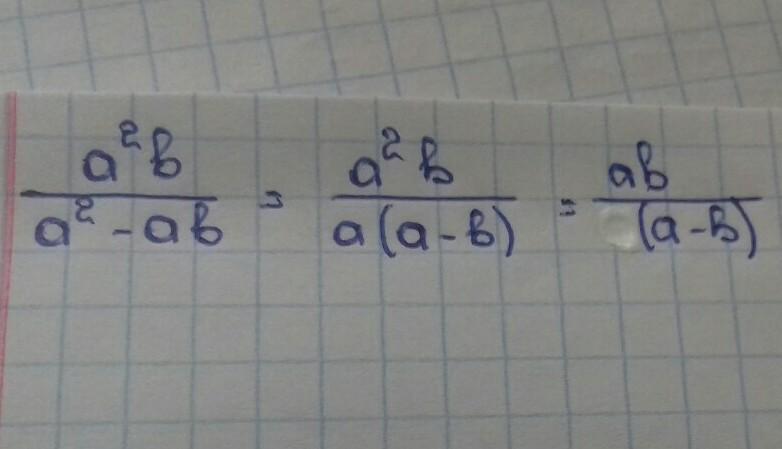 a²b/(a² - ab) = a²b/(a(a - b)) = ab/(a - b)